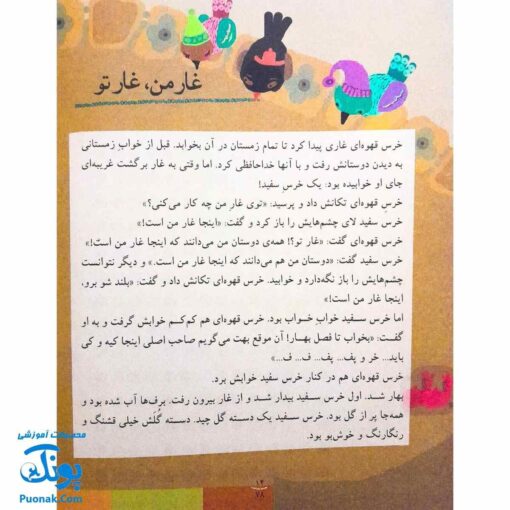 غار من، غار تو
خرس قهوه‌ای غاری پیدا کرد تا تمام زمستان در آن بخوابد. قبل از خواب زمستانی
به دیدن دوستانش رفت و با آنها خداحافظی کرد. اما وقتی به غار برگشت غریبه‌ای
جای او خوابیده بود: یک خرس سفید!
خرس قهوه‌ای تکانش داد و پرسید: «توی غار من چه کار می‌کنی؟»
خرس سفید لای چشم‌هایش را باز کرد و گفت: «اینجا غار من است!»
خرس قهوه‌ای گفت: «غار تو؟! همه‌ی دوستان من می‌دانند که اینجا غار من است!»
خرس سفید گفت: «دوستان من هم می‌دانند که اینجا غار من است.» و دیگر نتوانست
چشم‌هایش را باز نگه‌دارد و خوابید. خرس قهوه‌ای تکانش داد و گفت: «بلند شو برو،
اینجا غار من است!»
اما خرس سفید خواب خواب بود. خرس قهوه‌ای هم کم‌کم خوابش گرفت و به او
گفت: «بخواب تا فصل بهار! آن موقع بهت می‌گویم صاحب اصلی اینجا کیه و کی
باید... خر و پف... پف... ف... ف...»
خرس قهوه‌ای هم در کنار خرس سفید خوابش برد.
بهار شد. اول خرس سفید بیدار شد و از غار بیرون رفت. برف‌ها آب شده بود و
همه‌جا پر از گل بود. خرس سفید یک دسته گل چید. دسته گُلَش خیلی قشنگ و
رنگارنگ و خوش‌بو بود.
۱۲
۷۸
محصولات آموزشی
پونک
Puonak.Com